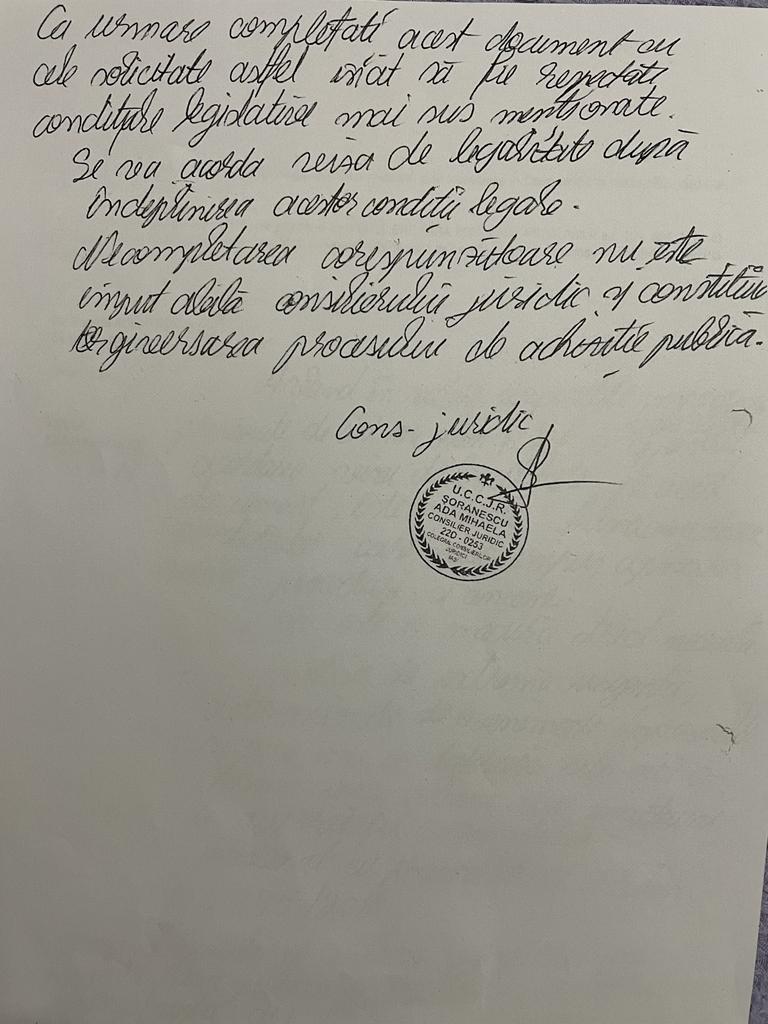 Ca urmare completați acest document cu
cele solicitate astfel încât să fie respectate
condițiile legislative mai sus menționate.
Se va acorda viza de legalitate după
îndeplinirea acestor condiții legale.
Necompletarea corespunzătoare nu este
imputabilă consilierului juridic și constituie
tergiversarea procesului de achiziție publică.
Cons. juridic
U.C.C.J.R.
ȘORANESCU
ADA MIHAELA
CONSILIER JURIDIC
22D - 0253
COLEGIUL CONSILIERILOR
JURIDICI
IAȘI